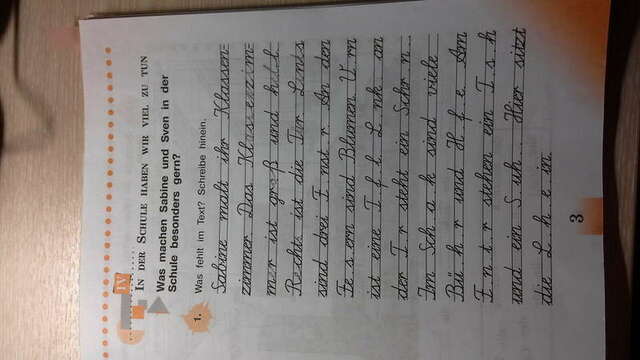 IV
IN DER SCHULE HABEN WIR VIEL ZU TUN
Was machen Sabine und Sven in der
Schule besonders gern?
1.
Was fehlt im Text? Schreibe hinein.
Sabine malt ihr Klassen-
zimmer. Das Klassenzim-
mer ist groß und hell.
Rechts ist die Tür. Links
sind drei F nst r. An den
Fe s ern sind Blumen. V rn
ist eine T f l. L nk an
der T r steht ein Schr n .
Im Sch a k sind viele
Bü h r und H f e. Am
F n t r stehen ein T s h
und ein S uh . Hier sitzt
die L h e in.
3